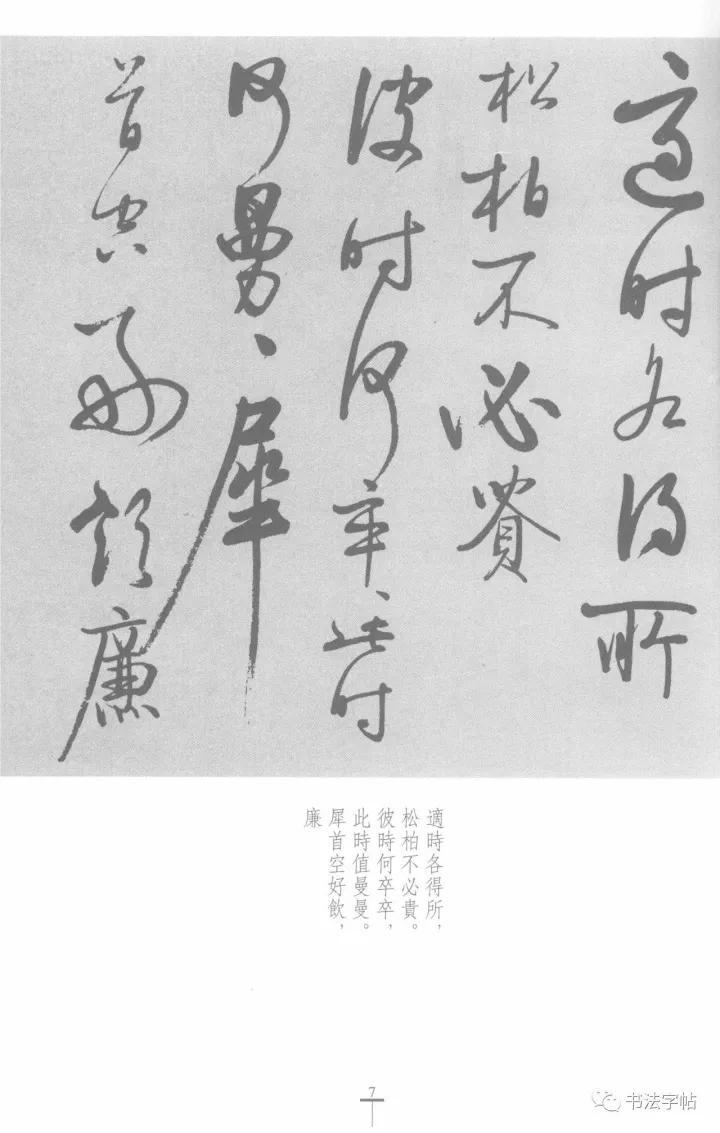 適時各得所
松柏不必貴
彼時何卒〻此時
何曼〻犀
首空好飲廉
適時各得所，
松柏不必貴。
彼時何卒卒，
此時值曼曼。
犀首空好飲，
廉
7
书法字帖